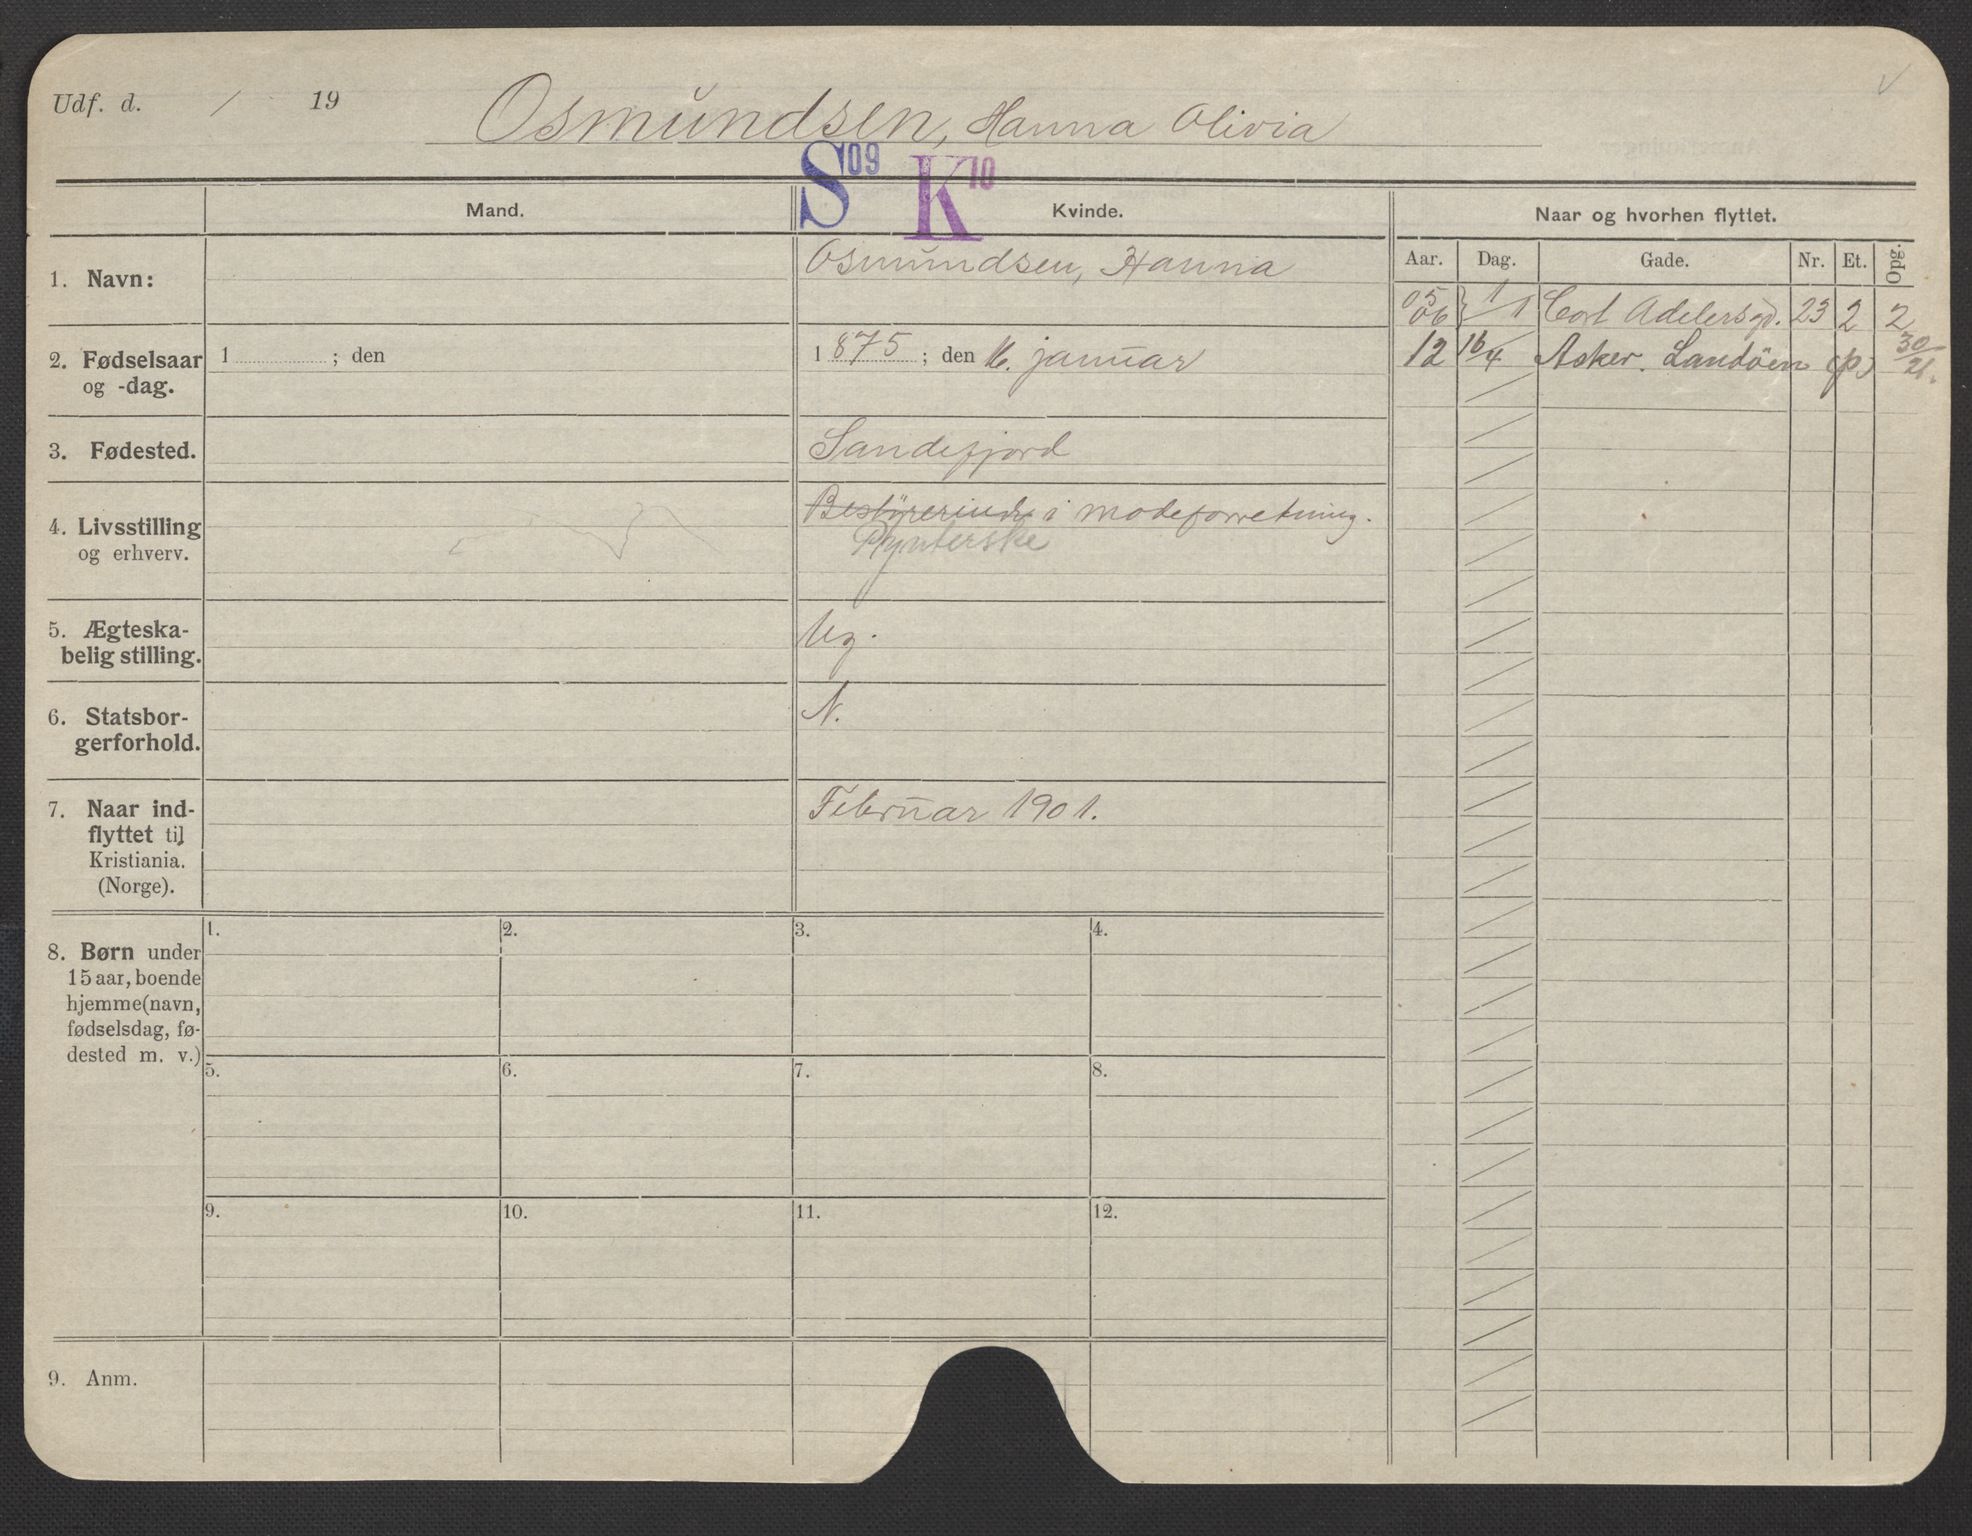 Udf. d. / 19 Osmundsen, Hanna Olivia
S 09 K 10
Mand. Kvinde. Naar og hvorhen flyttet.
Aar. Dag. Gade. Nr. Et. Opg.
1. Navn: Osmundsen, Hanna
05 06 } 1/1 Cort Adelersgd. 23 2 2
12 16/4 Asker. Landöen (p) 30/21.
2. Fødselsaar 1 ; den 1 875 ; den 16. januar
og -dag.
3. Fødested. Sandefjord
4. Livsstilling Bestÿrerinde i modeforretning.
og erhverv. Pynterske
5. Ægteska-
belig stilling. Ug.
6. Statsbor-
gerforhold. N.
7. Naar ind-
flyttet til
Kristiania.
(Norge). Februar 1901.
8. Børn under
15 aar, boende
hjemme(navn,
fødselsdag, fø-
dested m. v.)
1. 2. 3. 4.
5. 6. 7. 8.
9. 10. 11. 12.
9. Anm.